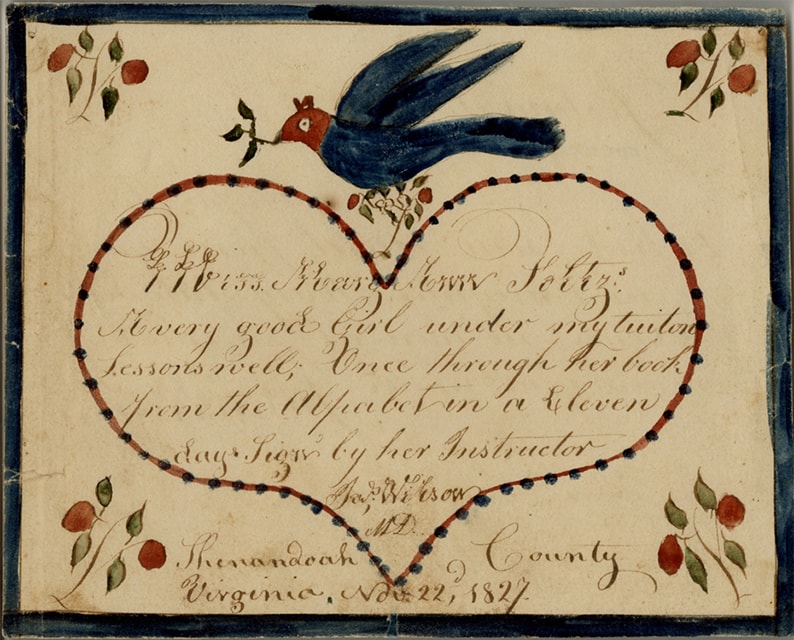 Miss Mary Ann Soltzs.
A very good Girl under my tuiton
Lessons well; Once through her book
from the Alpabet in a Eleven
day Sign by her Instructor
Jas. Wilson
MD.
Shenandoah County
Virginia, Nov. 22d, 1827